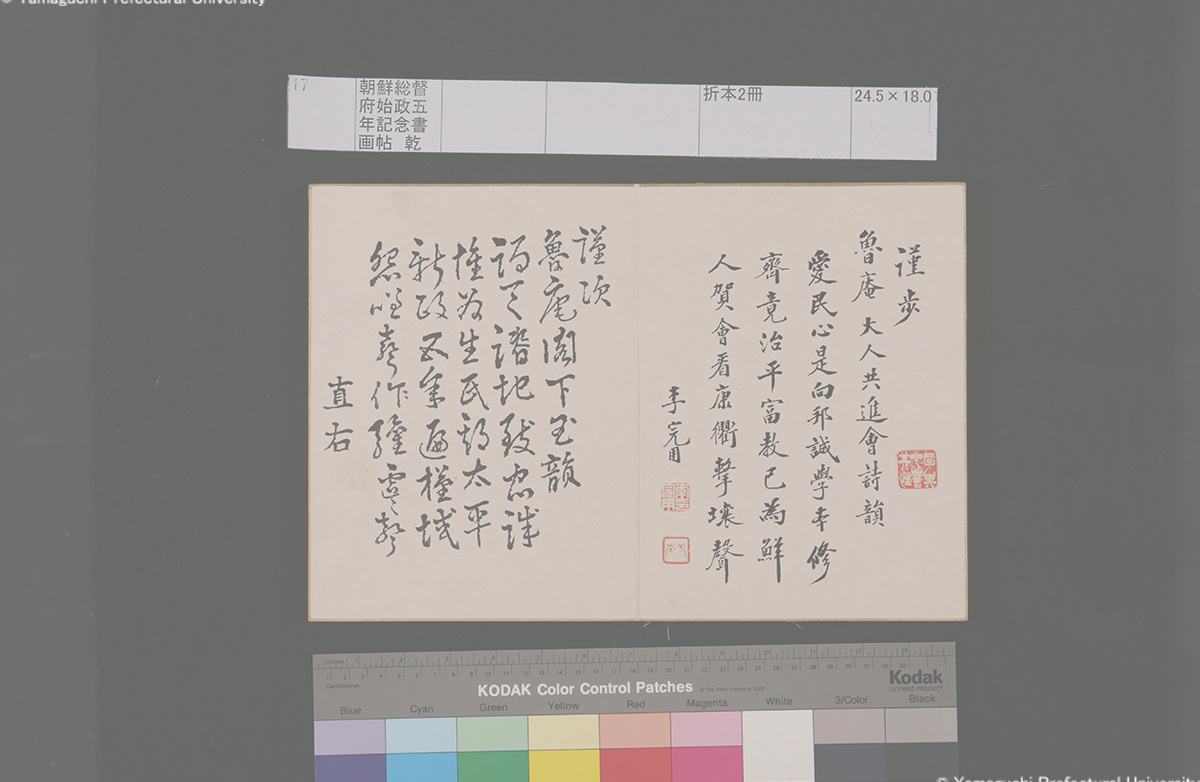 © Yamaguchi Prefectural University
17
朝鮮総督
府始政五
年記念書
画帖 乾
折本2冊
24.5×18.0
謹步
魯庵大人共進會詩韻
愛民心是向邦誠學本修
齊竟治平富教已為鮮
人賀會看康衢擊壤聲
李完用
謹次
魯庵閣下玉韻
謁天譜地致忠誠
惟為生民頌太平
新政五年遍槿域
直右
inches
Centimetres
KODAK Color Control Patches
© The Tiffen Company, 2000
Kodak
LICENSED PRODUCT
Blue Cyan Green Yellow Red Magenta White 3/Color Black
© Yamaguchi Prefectural University